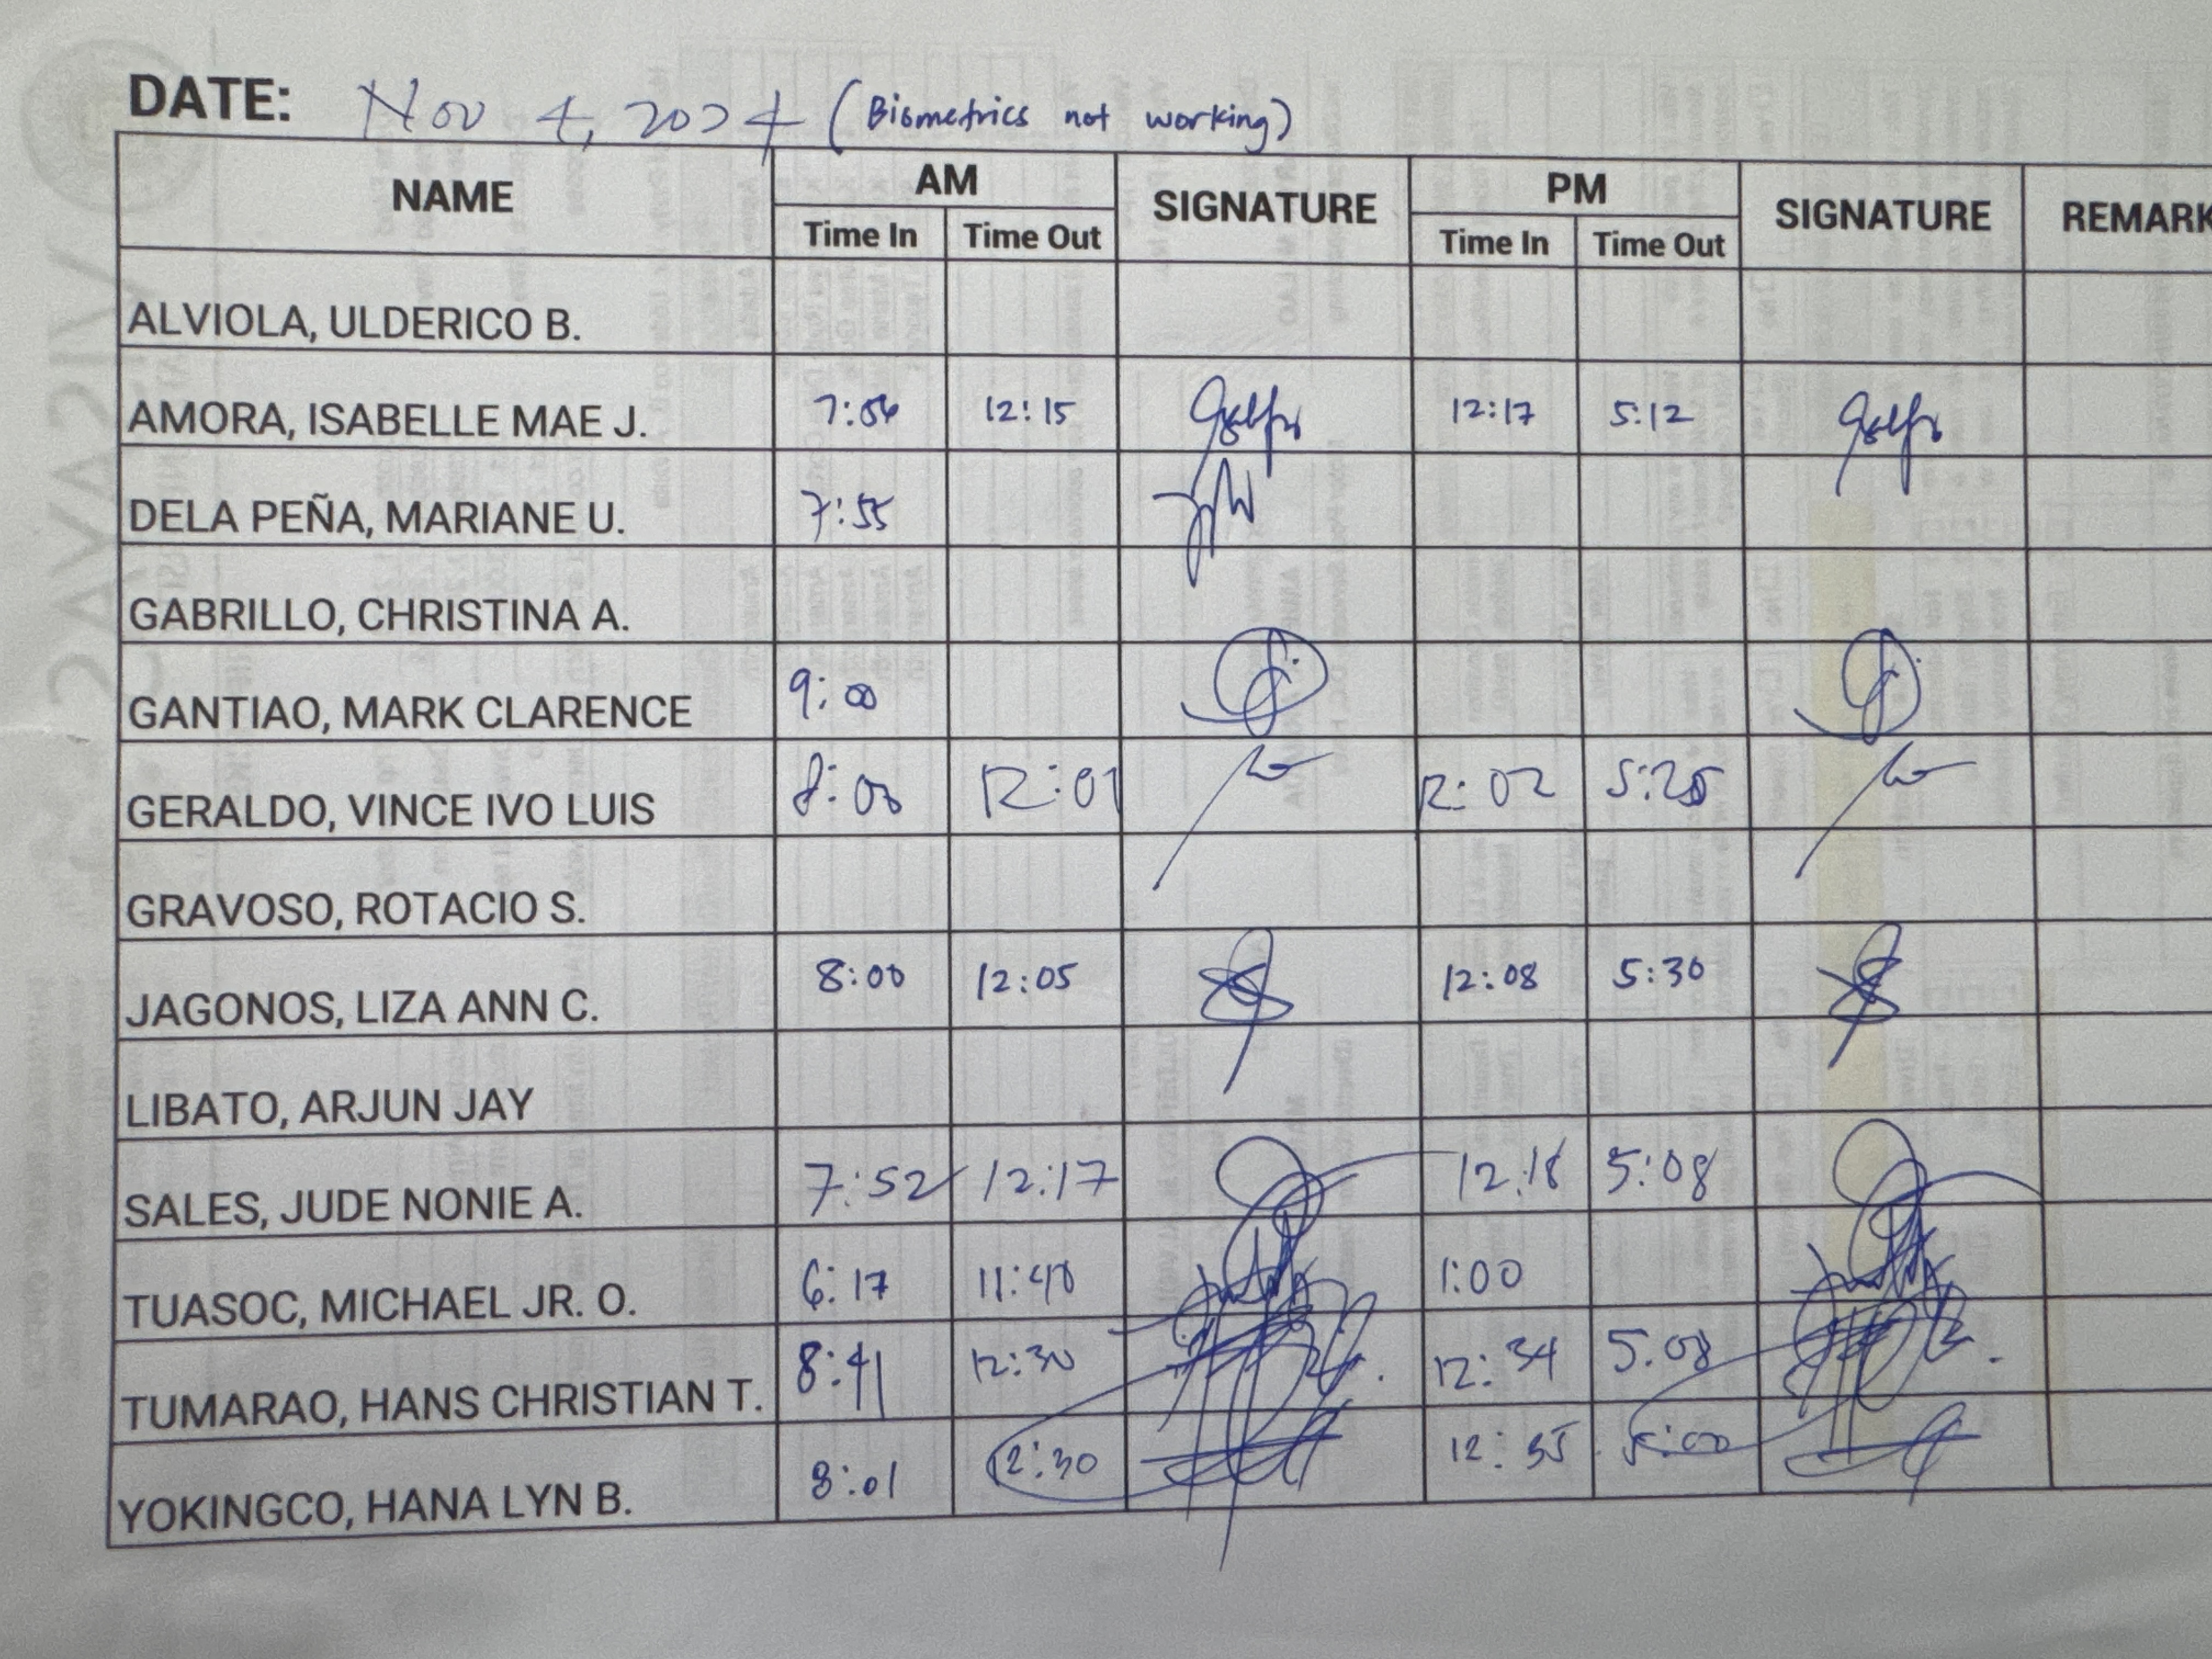 DATE: Nov 4, 2024 (Biometrics not working)
NAME AM SIGNATURE PM SIGNATURE REMARK
Time In Time Out Time In Time Out
ALVIOLA, ULDERICO B.
AMORA, ISABELLE MAE J. 12:15 12:17 5:12
DELA PEÑA, MARIANE U. 7:55
GABRILLO, CHRISTINA A.
GANTIAO, MARK CLARENCE 9:00
GERALDO, VINCE IVO LUIS 8:00 12:01 12:02 5:25
GRAVOSO, ROTACIO S.
JAGONOS, LIZA ANN C. 8:00 12:05 12:08 5:30
LIBATO, ARJUN JAY
SALES, JUDE NONIE A. 7:52 12:17 12:18 5:08
TUASOC, MICHAEL JR. O. 6:17 1:00
TUMARAO, HANS CHRISTIAN T. 8:41 12:30 12:34 5.08
YOKINGCO, HANA LYN B. 8:01 12:30 12:35 5:00